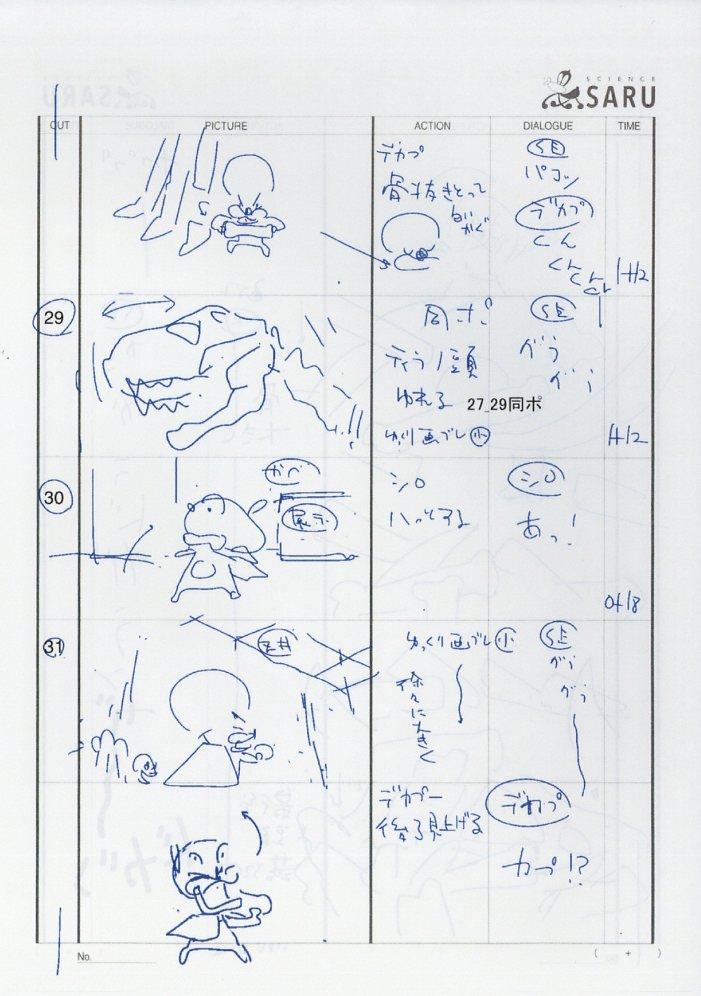 SCIENCE
SARU
CUT
PICTURE
ACTION
DIALOGUE
TIME
デカプ
骨抜きとって
SE
パコッ
デカプ
くん
1+12
29
同ポ
ティラノ頭
ゆれる
27_29同ポ
ゆっくり画ブレ 小
SE
グラ
グラ
1+12
30
かべ
シロ
ハッとする
シロ
あっ!
0+18
31
天井
ゆっくり画ブレ 小
徐々に大きく
SE
グラ
グラ
デカプー
後ろ見上げる
デカプ
カプ!?
No.
( + )